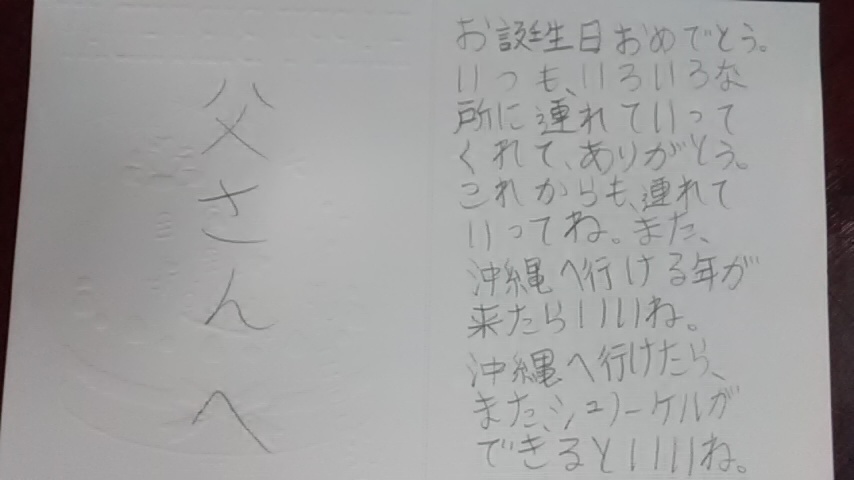 父さんへ
お誕生日おめでとう。
いつも、いろいろな
所に連れていって
くれて、ありがとう。
これからも、連れて
いってね。また、
沖縄へ行ける年が
来たらいいね。
沖縄へ行けたら、
また、シュノーケルが
できるといいね。